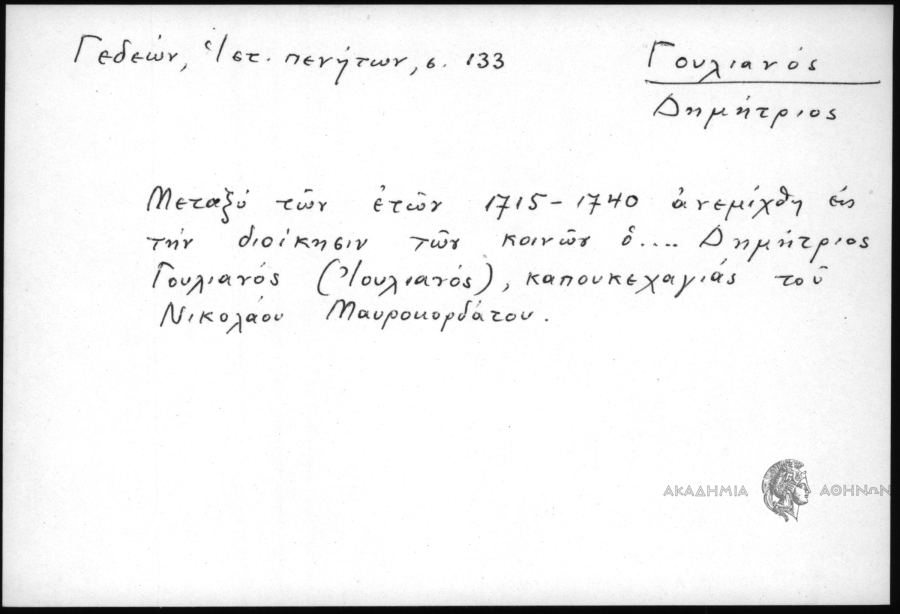 Γεδεών, Ἱστ. πενήτων, σ. 133
Γουλιανός
Δημήτριος
Μεταξύ τῶν ἐτῶν 1715-1740 ἀνεμίχθη εἰς
τήν διοίκησιν τῶν κοινῶν ὁ.... Δημήτριος
Γουλιανός (Ἰουλιανός), καπουκεχαγιάς τοῦ
Νικολάου Μαυροκορδάτου.
ΑΚΑΔΗΜΙΑ ΑΘΗΝΩΝ